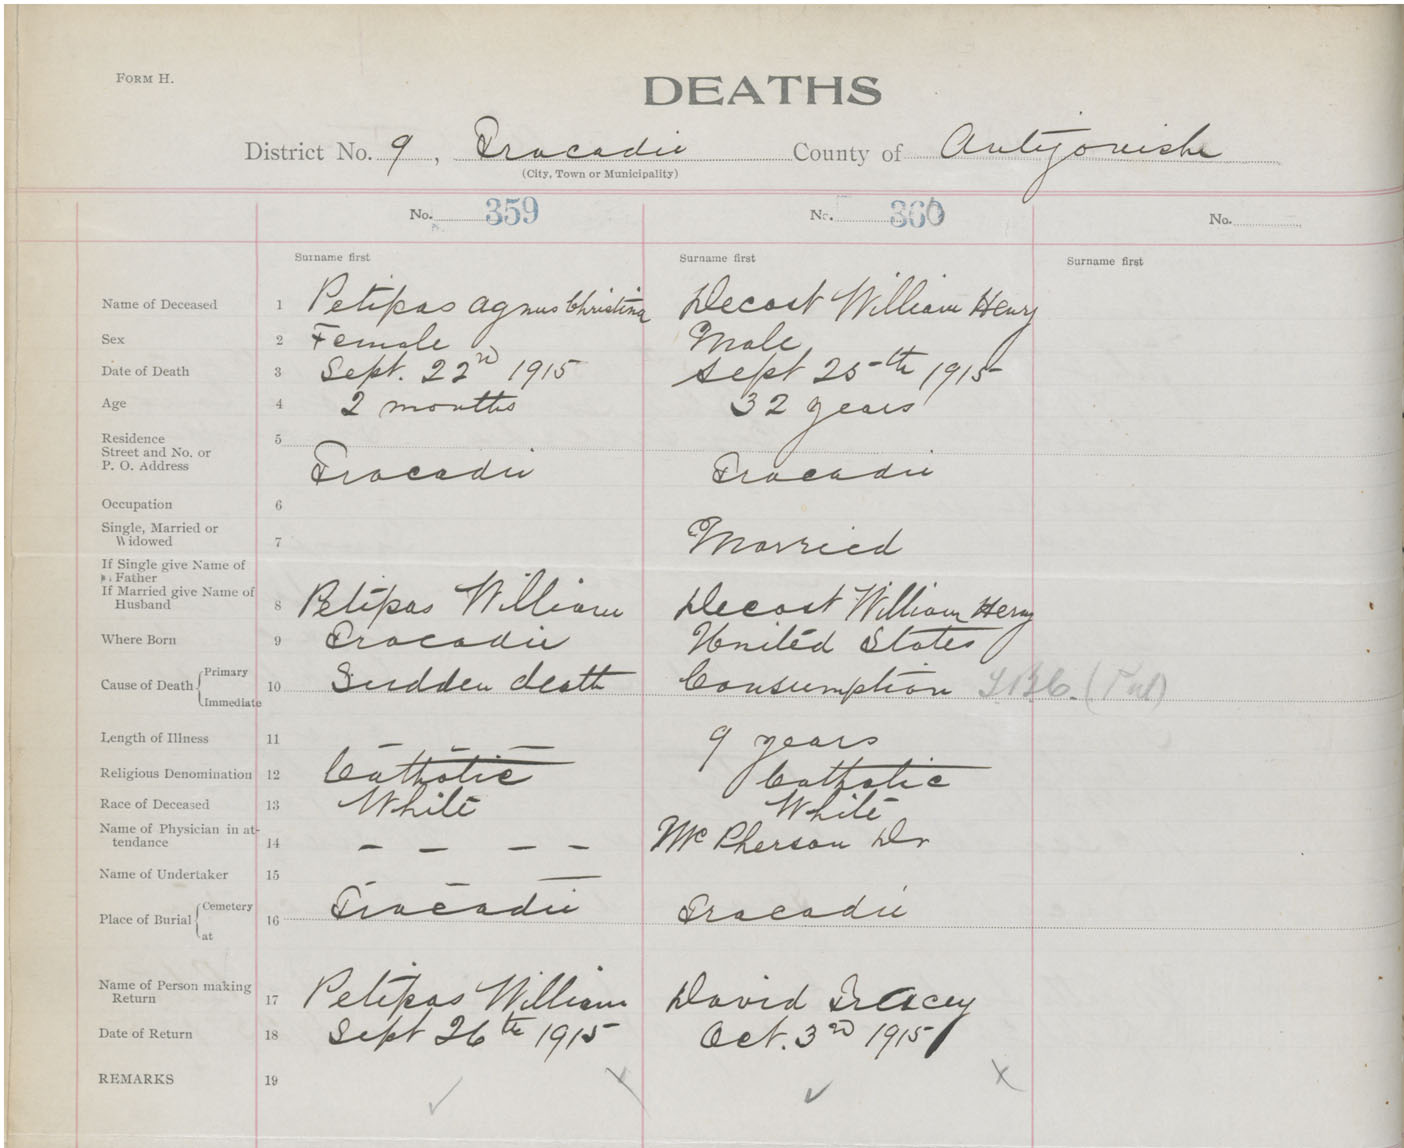 FORM H.
DEATHS
District No. 9, Tracadie County of Antigonishe
(City, Town or Municipality)
No. 359 No. 360 No.
Surname first Surname first Surname first
Name of Deceased 1 Petipas Agnus Christina Decost William Henry
Sex 2 Female Male
Date of Death 3 Sept. 22nd 1915 Sept 25th 1915
Age 4 2 months 32 years
Residence 5
Street and No. or
P. O. Address Tracadie Tracadie
Occupation 6
Single, Married or
Widowed 7 Married
If Single give Name of
Father
If Married give Name of
Husband 8 Petipas William Decost William Henry
Where Born 9 Tracadie United States
Cause of Death { Primary
Immediate 10 Sudden death Consumption T.B.C. (Pul)
Length of Illness 11 — — — 9 years
Religious Denomination 12 Catholic Catholic
Race of Deceased 13 White White
Name of Physician in at-
tendance 14 — — — — McPherson Dr
Name of Undertaker 15 — — —
Place of Burial { Cemetery
at 16 Tracadie Tracadie
Name of Person making
Return 17 Petipas William David Tracey
Date of Return 18 Sept 26th 1915 Oct. 3rd 1915
REMARKS 19